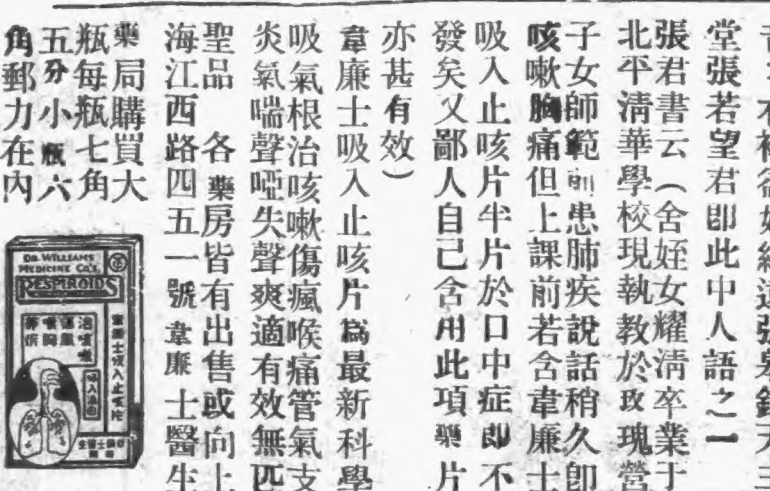 堂張若望君即此中人語之一
張君書云（舍姪女耀淸卒業于
北平淸華學校現執教於玫瑰營
子女師範前患肺疾說話稍久卽
咳嗽胸痛但上課前若含韋廉士
吸入止咳片半片於口中症卽不
發矣又鄙人自己含用此項藥片
亦甚有效）
韋廉士吸入止咳片爲最新科學
吸氣根治咳嗽傷瘋喉痛管氣支
炎氣喘聲啞失聲爽適有效無匹
聖品 各藥房皆有出售或向上
海江西路四五一號韋廉士醫生
藥局購買大
瓶每瓶七角
五分小瓶六
角郵力在內
DR. WILLIAMS
MEDICINE CO'S.
RESPIROIDS
韋廉士吸入止咳片